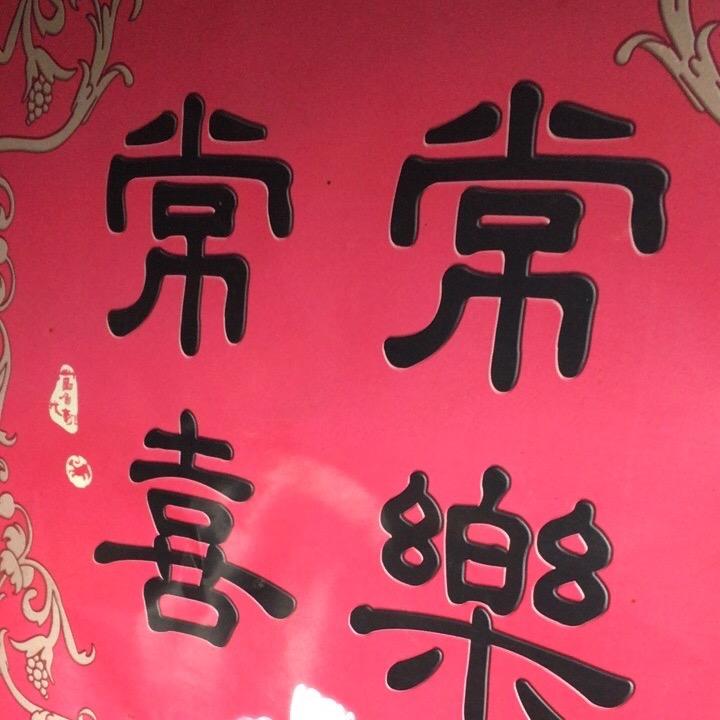 常樂
常喜